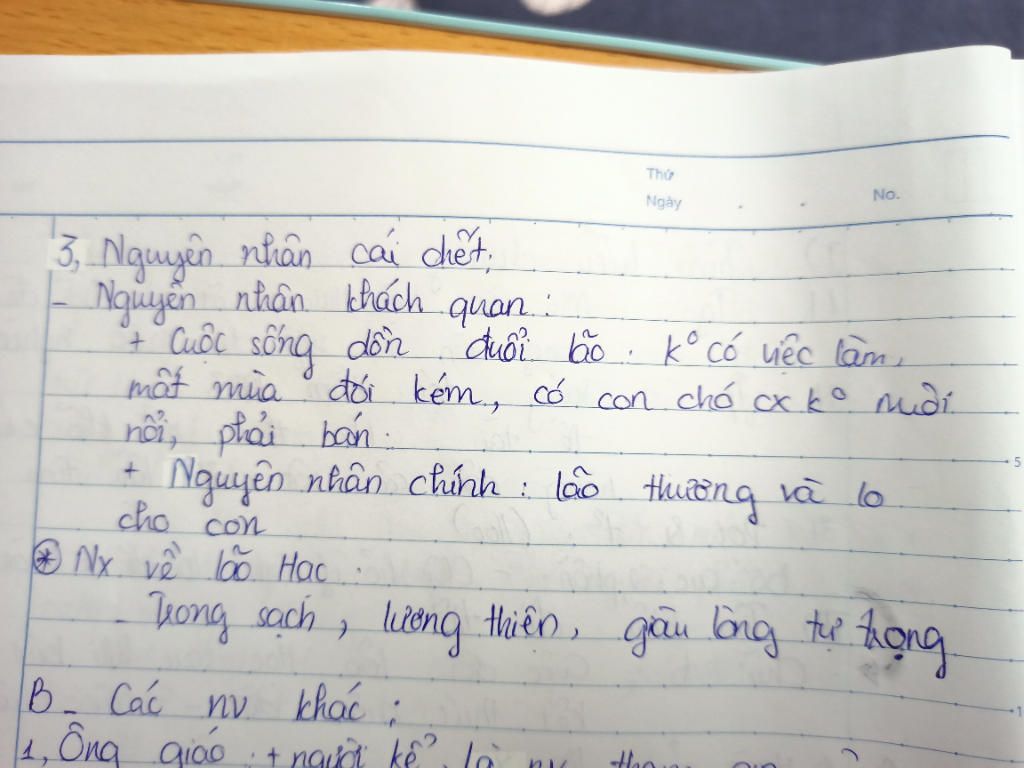 Thứ
Ngày . . No.
3, Nguyên nhân cái chết:
- Nguyên nhân khách quan:
+ Cuộc sống dồn đuổi lão. k° có việc làm,
mất mùa đói kém, có con chó cx k° nuôi
nổi, phải bán.
+ Nguyên nhân chính: lão thương và lo
cho con
* Nx về lão Hạc.
- Trong sạch, lương thiện, giàu lòng tự trọng
B- Các nv khác:
1, Ông giáo: + người kể là nv tham
5
1